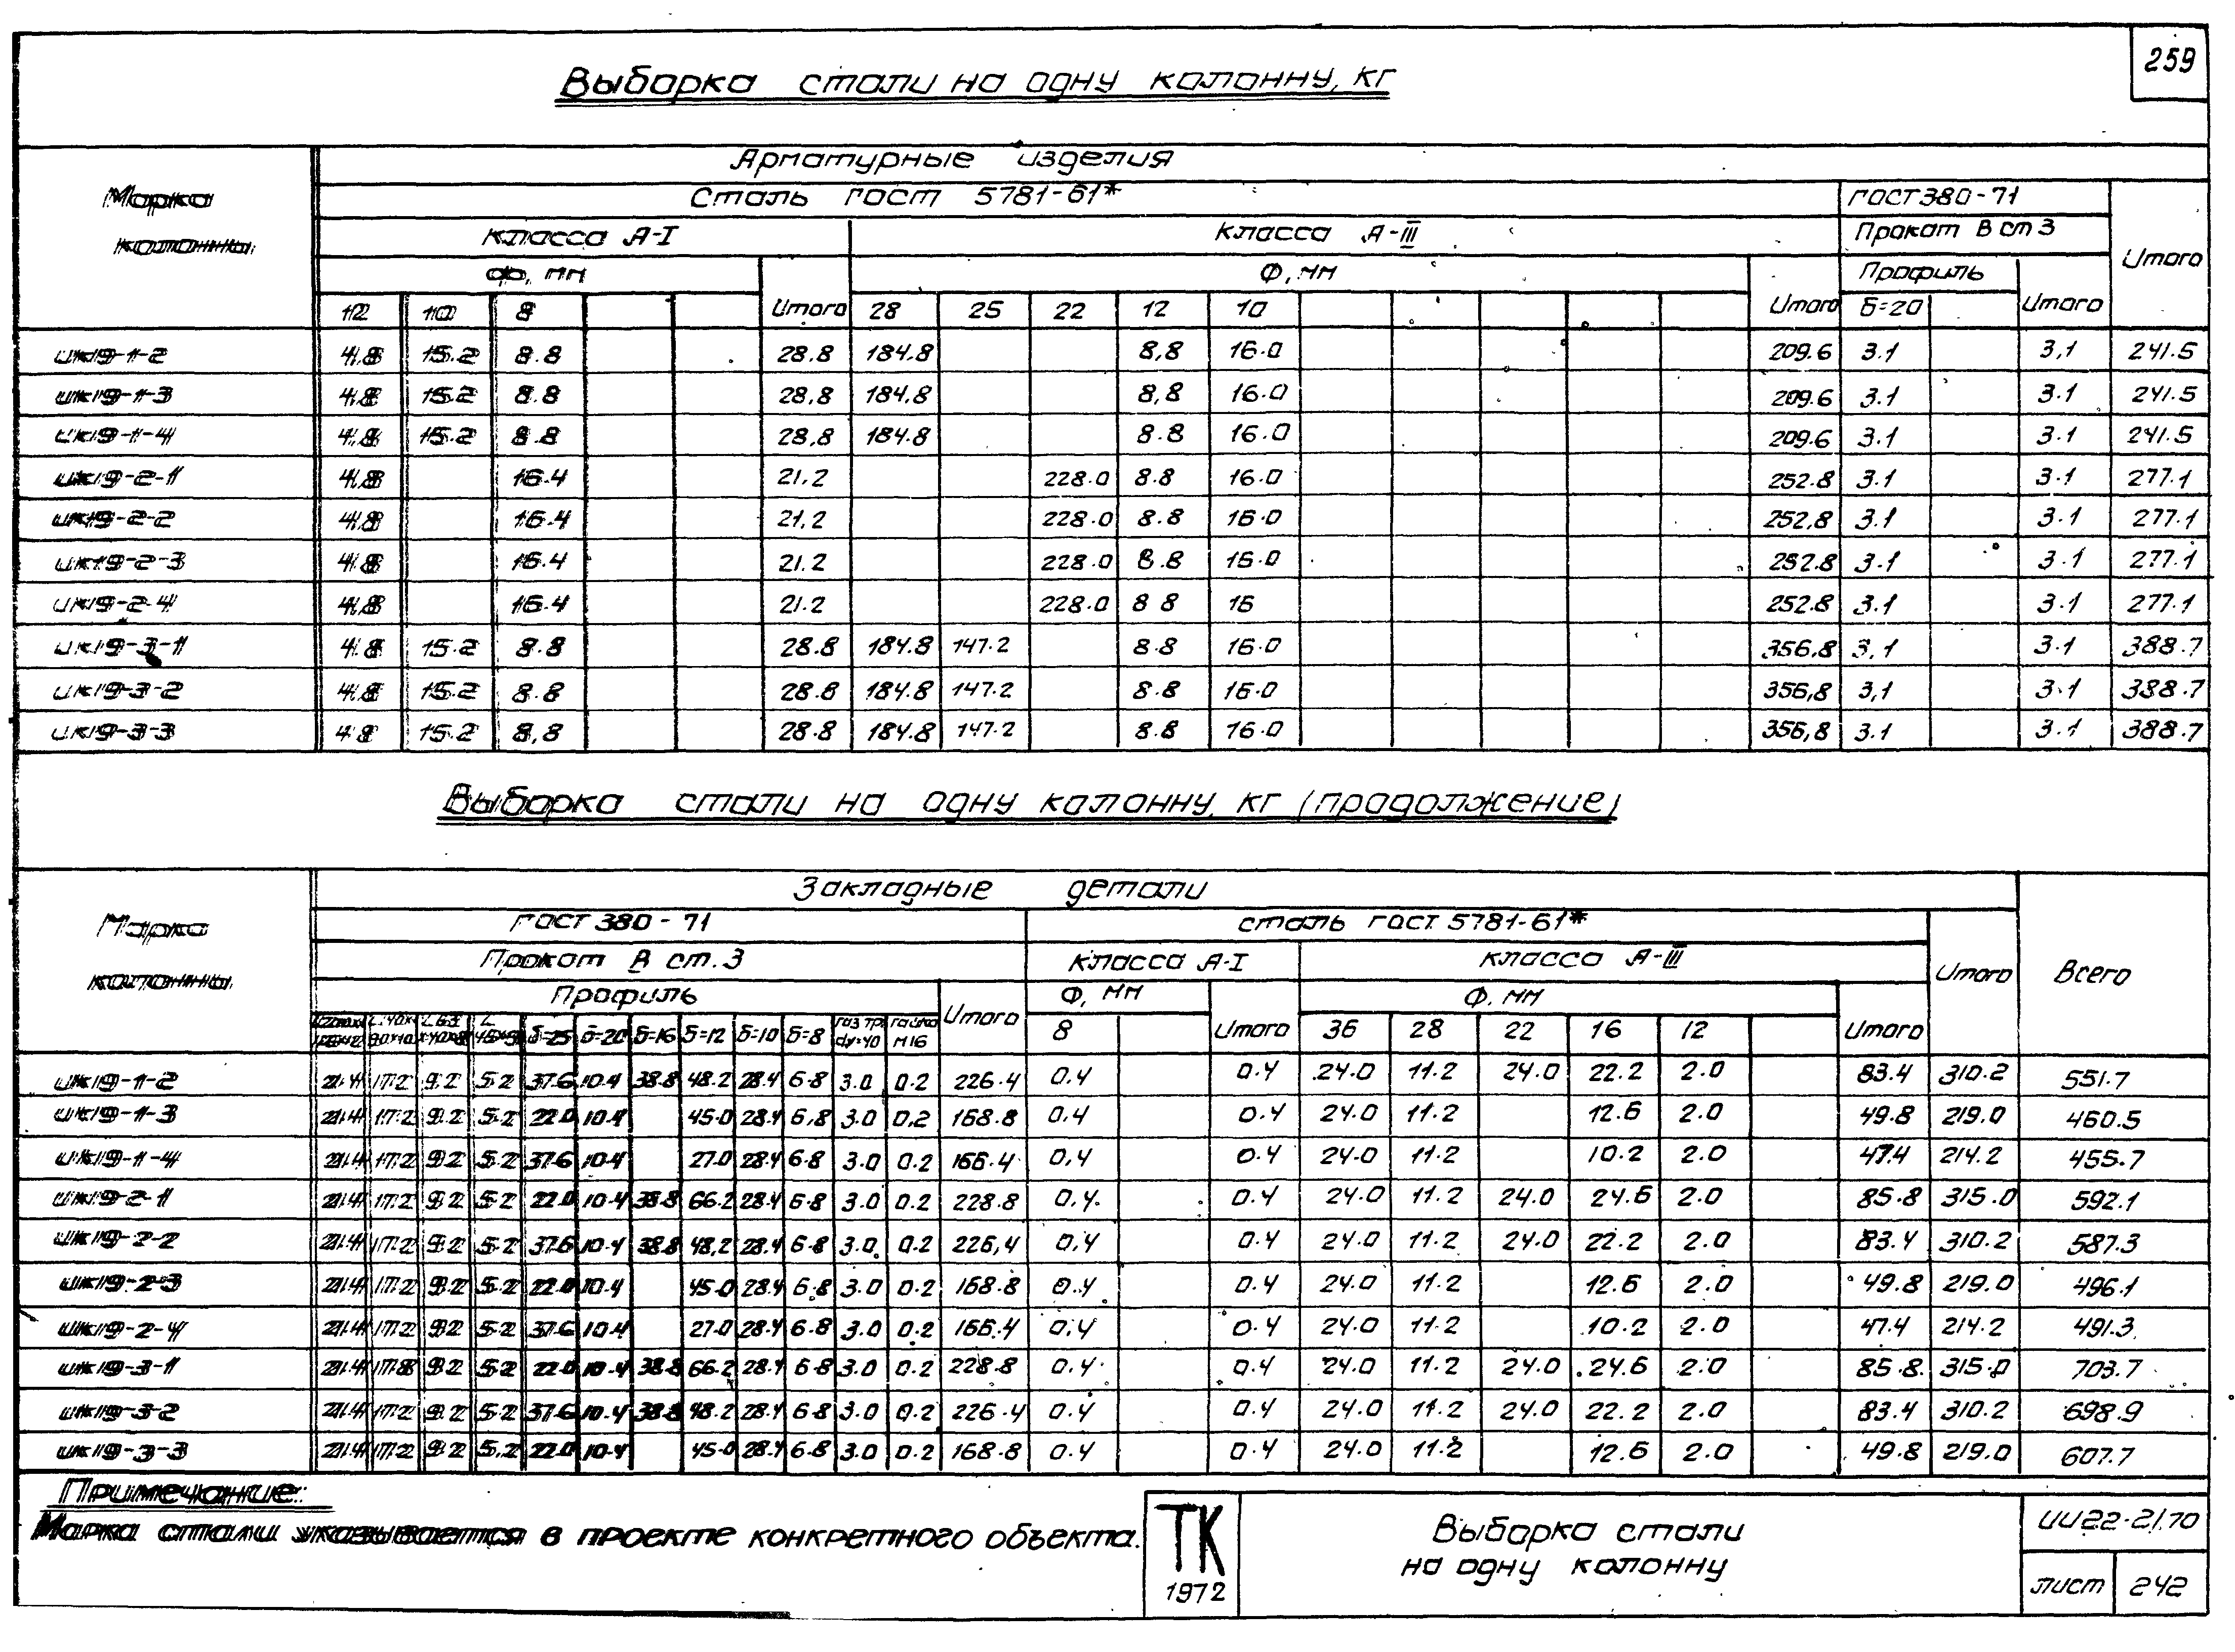 259
Выборка стали на одну колонну, кг
Марка колонны
Арматурные изделия
Сталь ГОСТ 5781-61* ГОСТ 380-71
Класса А-I Класса А-III Прокат В ст 3 Итого
Ф, мм Ф, мм Профиль
12 10 8 Итого 28 25 22 12 10 Итого δ=20 Итого
ИК19-1-2 4.8 15.2 8.8 28.8 184.8 8,8 16.0 209.6 3.1 3,1 241.5
ИК19-1-3 4.8 15.2 8.8 28,8 184,8 8,8 16.0 209.6 3.1 3.1 241.5
ИК19-1-4 4.8 15.2 8.8 28,8 184.8 8.8 16.0 209.6 3.1 3.1 241.5
ИК19-2-1 4.8 16.4 21,2 228.0 8.8 16.0 252.8 3.1 3.1 277.1
ИК19-2-2 4.8 16.4 21,2 228.0 8.8 16.0 252,8 3.1 3.1 277.1
ИК19-2-3 4.8 16.4 21.2 228.0 8.8 16.0 252.8 3.1 3.1 277.1
ИК19-2-4 4.8 16.4 21.2 228.0 8 8 16 252.8 3.1 3.1 277.1
ИК19-3-1 4.8 15.2 8.8 28.8 184.8 147.2 8.8 16.0 356,8 3,1 3.1 388.7
ИК19-3-2 4.8 15.2 8.8 28.8 184.8 147.2 8.8 16.0 356,8 3,1 3.1 388.7
ИК19-3-3 4.8 15.2 8,8 28.8 184.8 147.2 8.8 16.0 356,8 3.1 3.1 388.7
Выборка стали на одну колонну, кг (продолжение)
Марка колонны
Закладные детали
ГОСТ 380-71 сталь ГОСТ 5781-61*
Прокат В ст. 3 Класса А-I класса А-III Итого Всего
Профиль Итого Ф, мм Ф, мм
δ=25 δ=20 δ=16 δ=12 δ=10 δ=8 газ тр. dy=40 гайка М16 8 Итого 36 28 22 16 12 Итого
ИК19-1-2 21.4 17.2 9.2 5.2 37.6 10.4 38.8 48.2 28.4 6.8 3.0 0.2 226.4 0.4 0.4 24.0 11.2 24.0 22.2 2.0 83.4 310.2 551.7
ИК19-1-3 21.4 17.2 9.2 5.2 22.0 10.4 45.0 28.4 6,8 3.0 0,2 168.8 0.4 0.4 24.0 11.2 12.6 2.0 49.8 219.0 460.5
ИК19-1-4 21.4 17.2 9.2 5.2 37.6 10.4 27.0 28.4 6.8 3.0 0.2 166.4 0,4 0.4 24.0 11.2 10.2 2.0 47.4 214.2 455.7
ИК19-2-1 21.4 17.2 9.2 5.2 22.0 10.4 38.8 66.2 28.4 6.8 3.0 0.2 228.8 0.4 0.4 24.0 11.2 24.0 24.6 2.0 85.8 315.0 592.1
ИК19-2-2 21.4 17.2 9.2 5.2 37.6 10.4 38.8 48,2 28.4 6.8 3.0 0.2 226,4 0.4 0.4 24.0 11.2 24.0 22.2 2.0 83.4 310.2 587.3
ИК19-2-3 21.4 17.2 9.2 5.2 22.0 10.4 45.0 28.4 6.8 3.0 0.2 168.8 0.4 0.4 24.0 11.2 12.6 2.0 49.8 219.0 496.1
ИК19-2-4 21.4 17.2 9.2 5.2 37.6 10.4 27.0 28.4 6.8 3.0 0.2 166.4 0.4 0.4 24.0 11.2 10.2 2.0 47.4 214.2 491.3
ИК19-3-1 21.4 17.8 9.2 5.2 22.0 10.4 38.8 66.2 28.4 6.8 3.0 0.2 228.8 0.4 0.4 24.0 11.2 24.0 24.6 2.0 85.8 315.0 703.7
ИК19-3-2 21.4 17.2 9.2 5.2 37.6 10.4 38.8 48.2 28.4 6.8 3.0 0.2 226.4 0.4 0.4 24.0 11.2 24.0 22.2 2.0 83.4 310.2 698.9
ИК19-3-3 21.4 17.2 9.2 5.2 22.0 10.4 45.0 28.4 6.8 3.0 0.2 168.8 0.4 0.4 24.0 11.2 12.6 2.0 49.8 219.0 607.7
Примечание:
Марка стали указывается в проекте конкретного объекта.
ТК
1972
Выборка стали
на одну колонну
ИИ22-2/70
лист 242